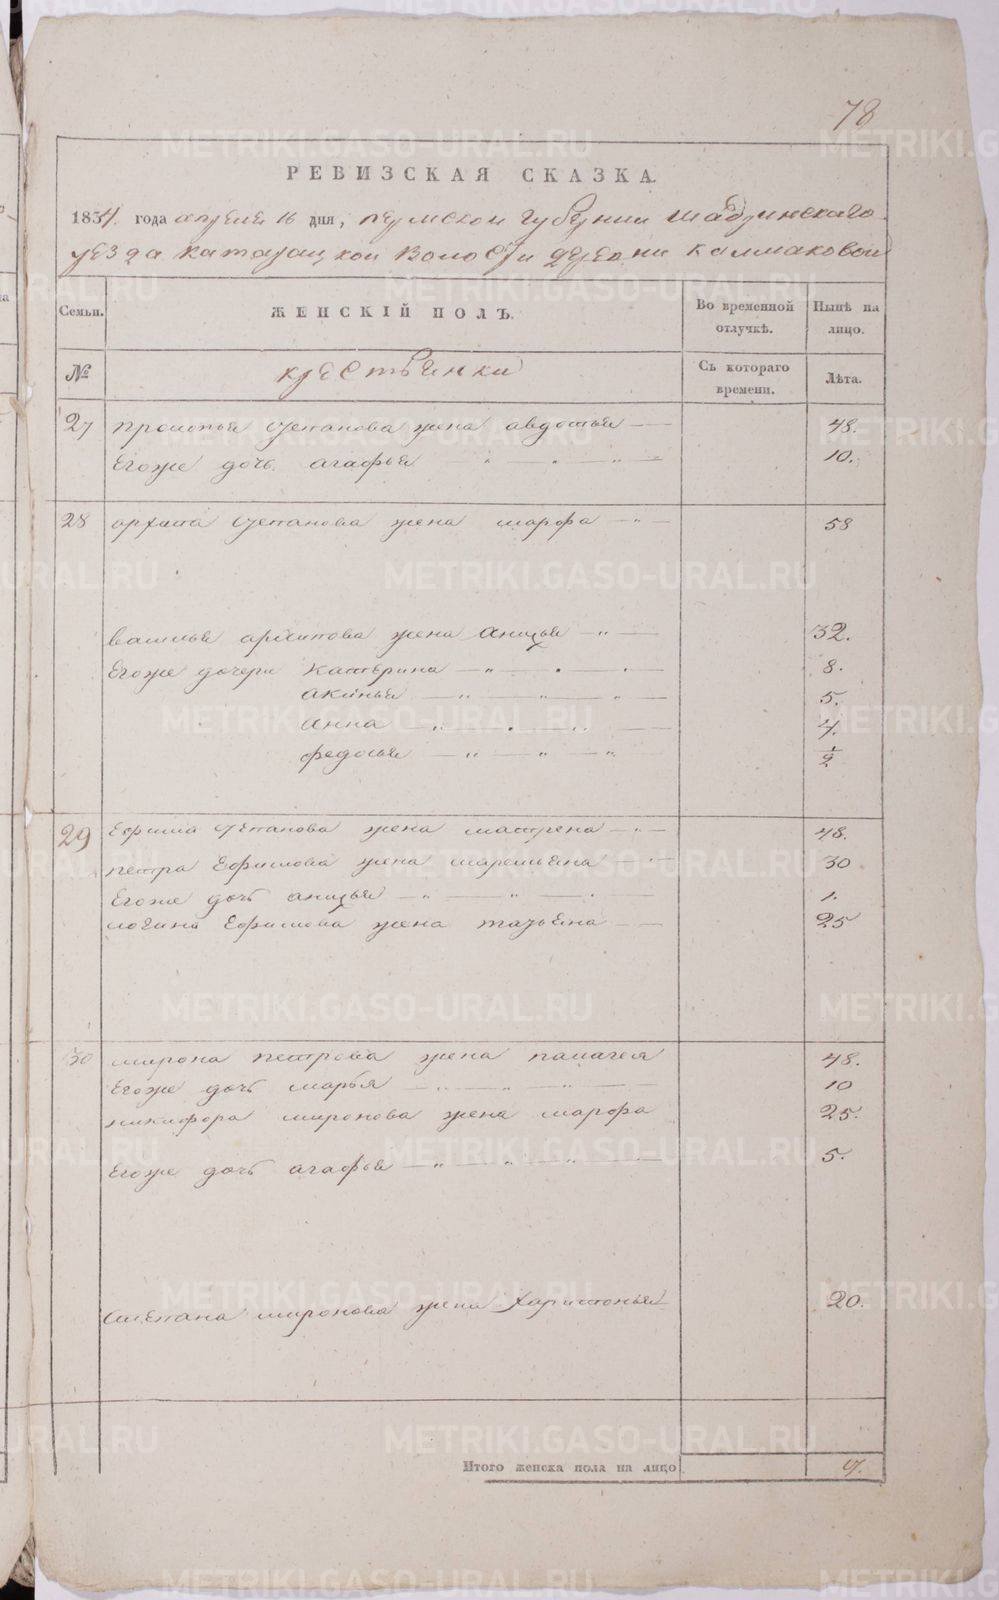 78
РЕВИЗСКАЯ СКАЗКА.
1834. года апреля 16 дня, пермской губернии шадринскаго
уезда катайской волости деревни калмаковой
Семьи. ЖЕНСКІЙ ПОЛЪ. Во временной отлучкѣ. Нынѣ на лицо.
№ крестьянки Съ котораго времени. Лѣта.
27 степанова жена авдотья 48.
Егоже дочь агафья 10.
28 архипа степанова жена марфа 58
василья архипова жена анисья 32.
Егоже дочери катерина 8.
акинья 5.
анна 4.
федосья 1/2
29 Ефима степанова жена матрена 48.
петра Ефимова жена маремьяна 30
Егоже дочь анисья 1.
логина Ефимова жена татьяна 25
30 мирона петрова жена палагея 48.
Егоже дочь марья 10
никифора миронова жена марфа 25.
Егоже дочь агафья 5.
степана миронова жена харитонья 20.
Итого женска пола на лицо
METRIKI.GASO-URAL.RU